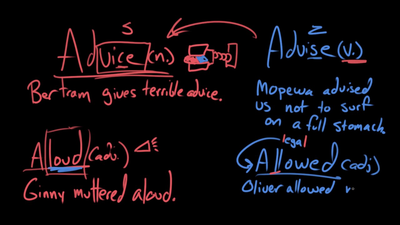 S
Advice (n.)
Bertram gives terrible advice.
Z
Advise (v.)
Mopewa advised
us not to surf
on a full stomach
Aloud (adv.)
Ginny muttered aloud.
legal
Allowed (adj)
Oliver allowed